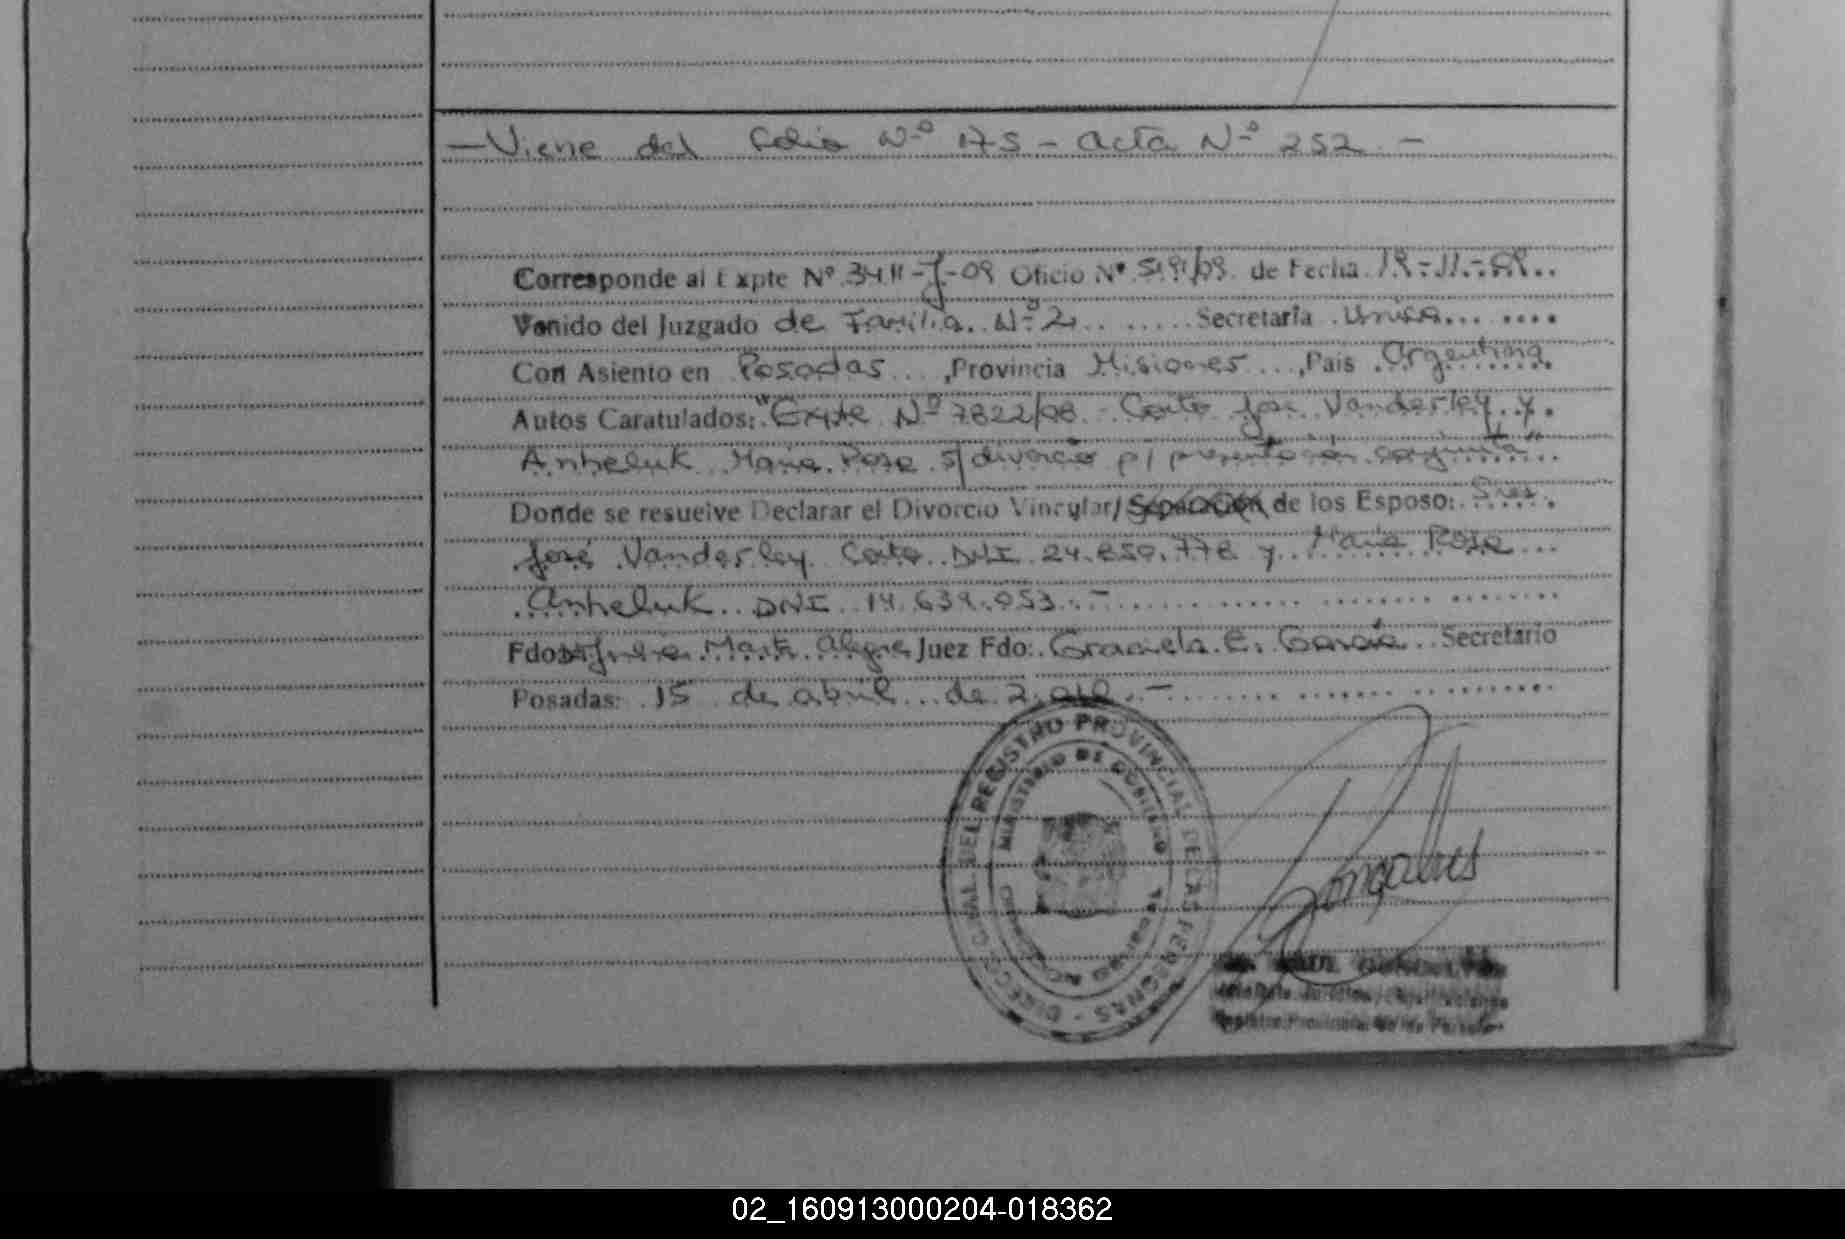 — Viene del folio Nº 175 – acta Nº 252 –
Corresponde al Expte Nº 3411-J-09 Oficio Nº 5191/09 de Fecha 19-11-09
Venido del Juzgado de Familia Nº 2 Secretaria Unica
Con Asiento en Posadas, Provincia Misiones, Pais Argentina
Autos Caratulados: "Expte Nº 7822/08 - Coito José Vanderley y
Anheluk Maria Rosa s/ divorcio p/ presentación conjunta"
Donde se resuelve Declarar el Divorcio Vincular/ Separación de los Esposo: Sres.
José Vanderley Coito DNI 24.850.778 y Maria Rosa
Anheluk DNI 14.639.053.-
Fdo Alegre Juez Fdo: Graciela E. Garcia Secretario
Posadas: 15 de abril de 2.010.-
DIRECC. GRAL. DEL REGISTRO PROVINCIAL DE LAS PERSONAS
MINISTERIO DE GOBIERNO
Gonçalves
02_160913000204-018362